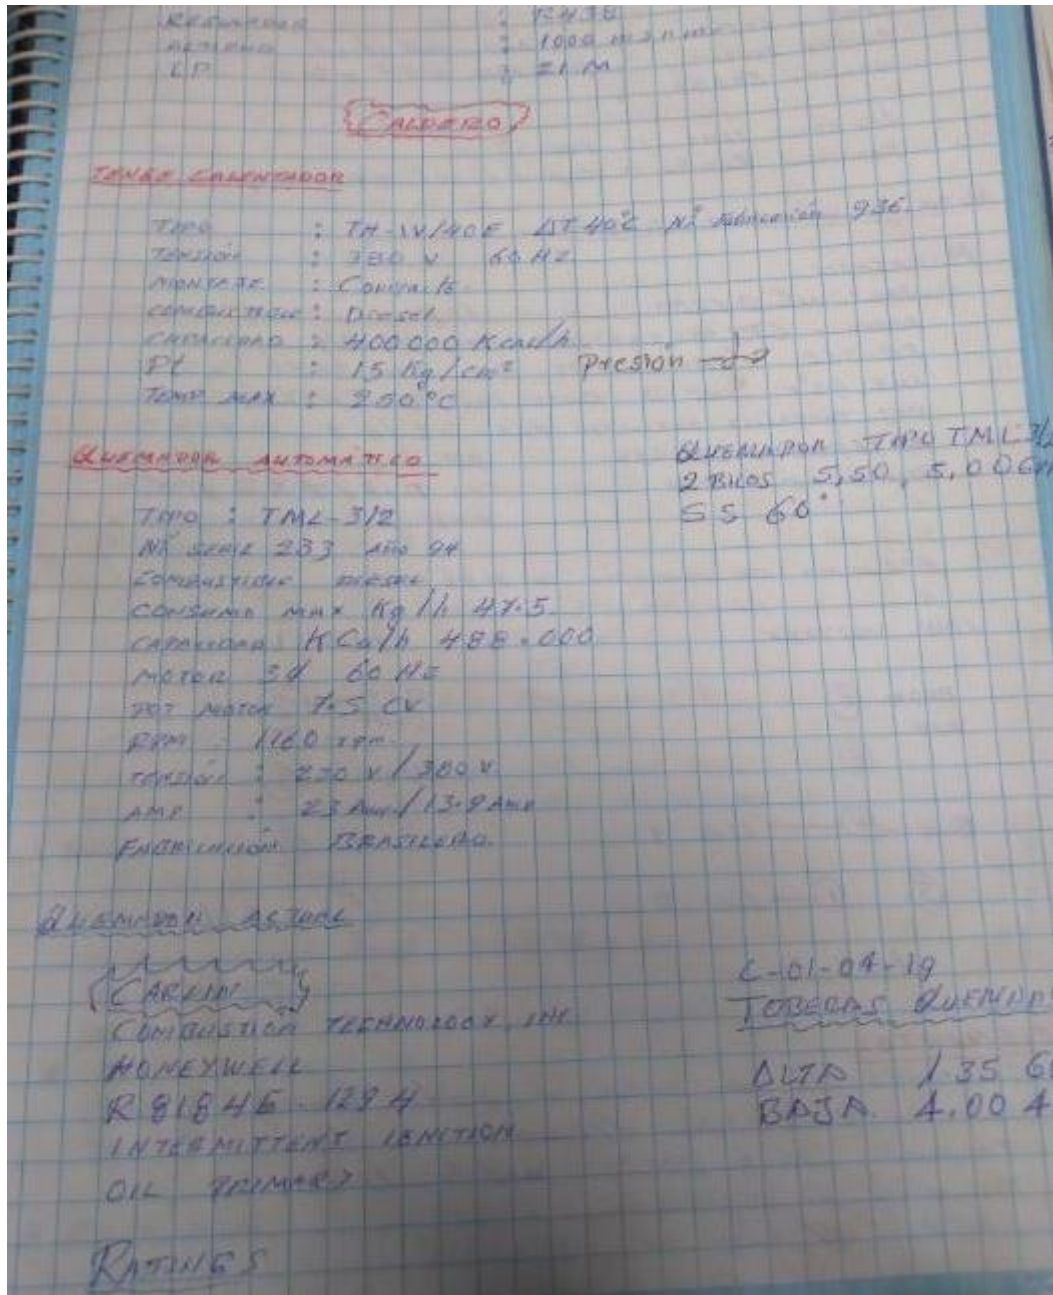 : R438
: 1000 m s n m
: 21 M
CALDERO
TANQUE CALENTADOR
TIPO : TH-IV/40E ΔT 40°C Nº Fabricación 936
TENSIÓN : 380 V 60 HZ
MONTAJE : Compacto
COMBUSTIBLE : Diesel
CAPACIDAD : 400000 Kcal/h
Pt : 15 Kg/cm² Presión
TEMP MAX : 250°C
QUEMADOR AUTOMÁTICO
QUEMADOR TIPO TML 3/2
2 BICOS 5,50, 5,00 G
SS 60°
TIPO : TML-3/2
Nº SERIE 233 AÑO 94
COMBUSTIBLE DIESEL
CONSUMO MAX Kg/h 47.5
CAPACIDAD KCa/h 488.000
MOTOR 3Ø 60 HZ
POT MOTOR 7.5 CV
RPM 1160 rpm
TENSIÓN : 220 V / 380 V
AMP : 23 Amp / 13.8 Amp
FABRICACIÓN BRASILERO.
QUEMADOR ACTUAL
CARLIN
COMBUSTION TECHNOLOGY, INC
HONEYWELL
R 8184G 1294
INTERMITTENT IGNITION
OIL PRIMARY
-01-04-19
TOBERAS QUEMAD
ALTA 1.35 6
BAJA 4.00 4
RATINGS